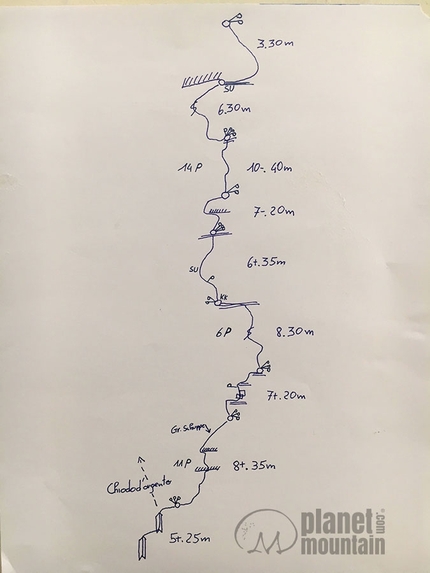 3.30m
SU
6.30m
14P
10-.40m
7-.20m
6+.35m
SU
KK
6P
8.30m
7+.20m
Gr. Schuppe
11P
8+.35m
Chiodo d'argento
5+.25m
planet
mountain
.com